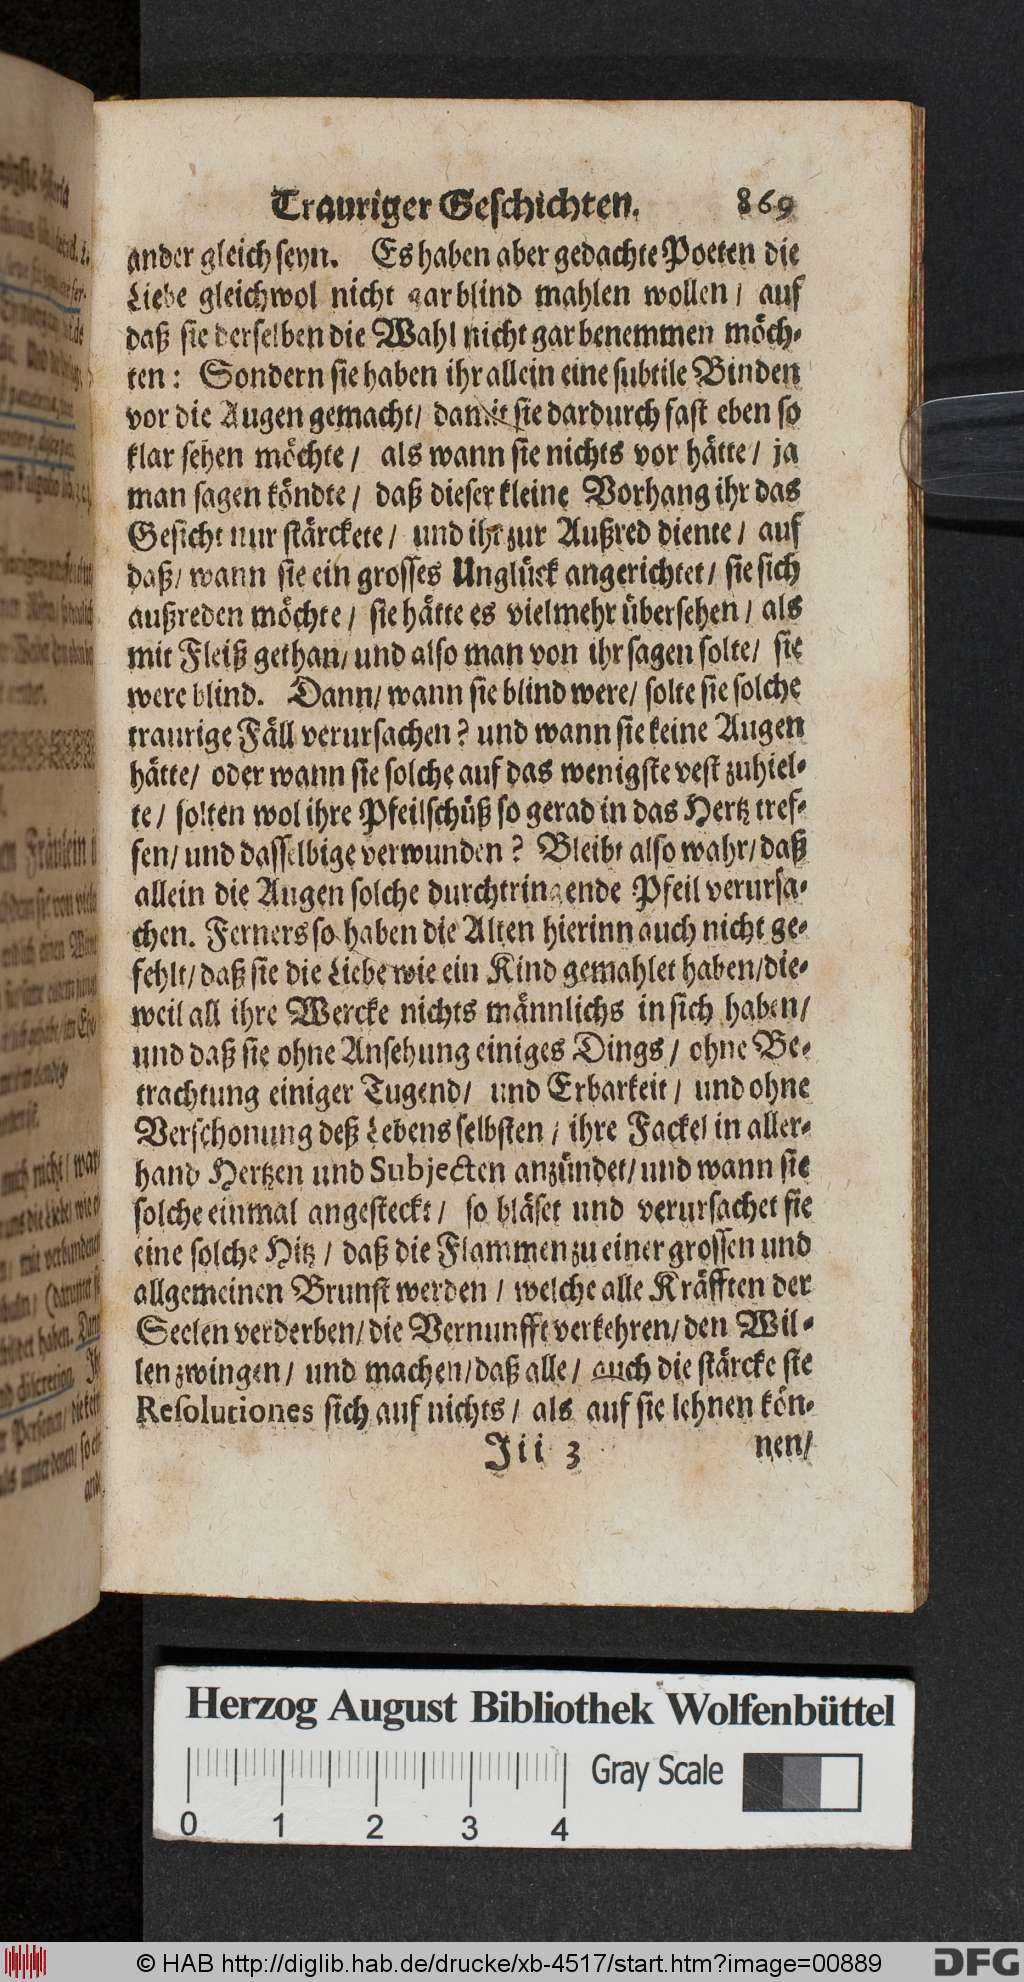 Trauriger Geschichten. 869
ander gleich seyn. Es haben aber gedachte Poeten die
Liebe gleichwol nicht gar blind mahlen wollen / auf
daß sie derselben die Wahl nicht gar benemmen möch-
ten: Sondern sie haben ihr allein eine subtile Binden
vor die Augen gemacht / damit sie dardurch fast eben so
klar sehen möchte / als wann sie nichts vor hätte / ja
man sagen köndte / daß dieser kleine Vorhang ihr das
Gesicht nur stärckete / und ihr zur Außred diente / auf
daß / wann sie ein grosses Unglück angerichtet / sie sich
außreden möchte / sie hätte es vielmehr übersehen / als
mit Fleiß gethan / und also man von ihr sagen solte / sie
were blind. Dann / wann sie blind were / solte sie solche
traurige Fäll verursachen? und wann sie keine Augen
hätte / oder wann sie solche auf das wenigste vest zuhiel-
te / solten wol ihre Pfeilschüß so gerad in das Hertz tref-
fen / und dasselbige verwunden? Bleibt also wahr / daß
allein die Augen solche durchtringende Pfeil verursa-
chen. Ferners so haben die Alten hierinn auch nicht ge-
fehlt / daß sie die Liebe wie ein Kind gemahlet haben / die-
weil all ihre Wercke nichts männlichs in sich haben /
und daß sie ohne Ansehung einiges Dings / ohne Be-
trachtung einiger Tugend / und Erbarkeit / und ohne
Verschonung deß Lebens selbsten / ihre Fackel in aller-
hand Hertzen und Subjecten anzündet / und wann sie
solche einmal angesteckt / so bläset und verursachet sie
eine solche Hitz / daß die Flammen zu einer grossen und
allgemeinen Brunst werden / welche alle Kräfften der
Seelen verderben / die Vernunfft verkehren / den Wil-
len zwingen / und machen / daß alle / auch die stärcke ste
Resolutiones sich auf nichts / als auf sie lehnen kön-
Jii 3 nen /
Herzog August Bibliothek Wolfenbüttel
Gray Scale
0 1 2 3 4
© HAB http://diglib.hab.de/drucke/xb-4517/start.htm?image=00889
DFG